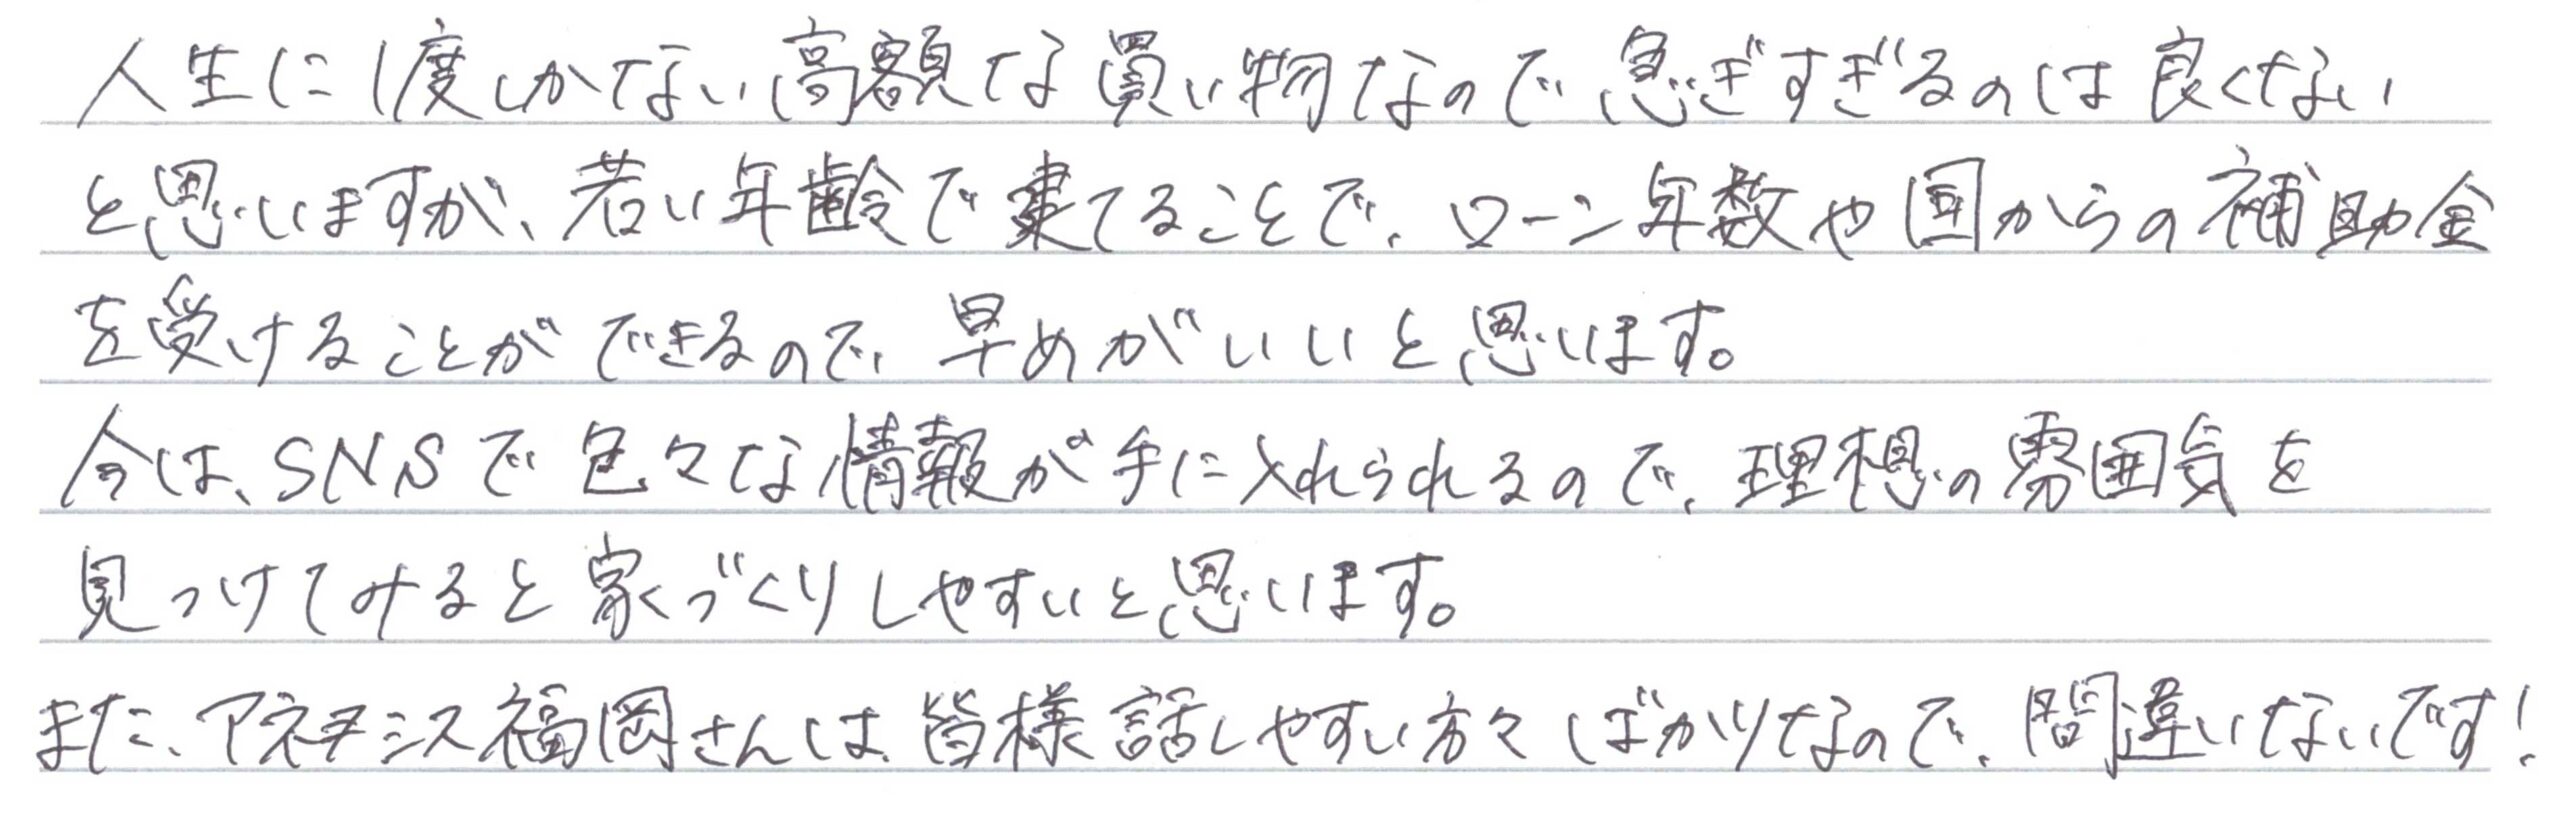 人生に1度しかない高額な買い物なので急ぎすぎるのは良くない
と思いますが、若い年齢で建てることで、ローン年数や国からの補助金
を受けることができるので、早めがいいと思います。
今は、SNSで色々な情報が手に入れられるので、理想の雰囲気を
見つけてみると家づくりしやすいと思います。
また、アネシス福岡さんは、皆様話しやすい方々ばかりなので、間違いないです!